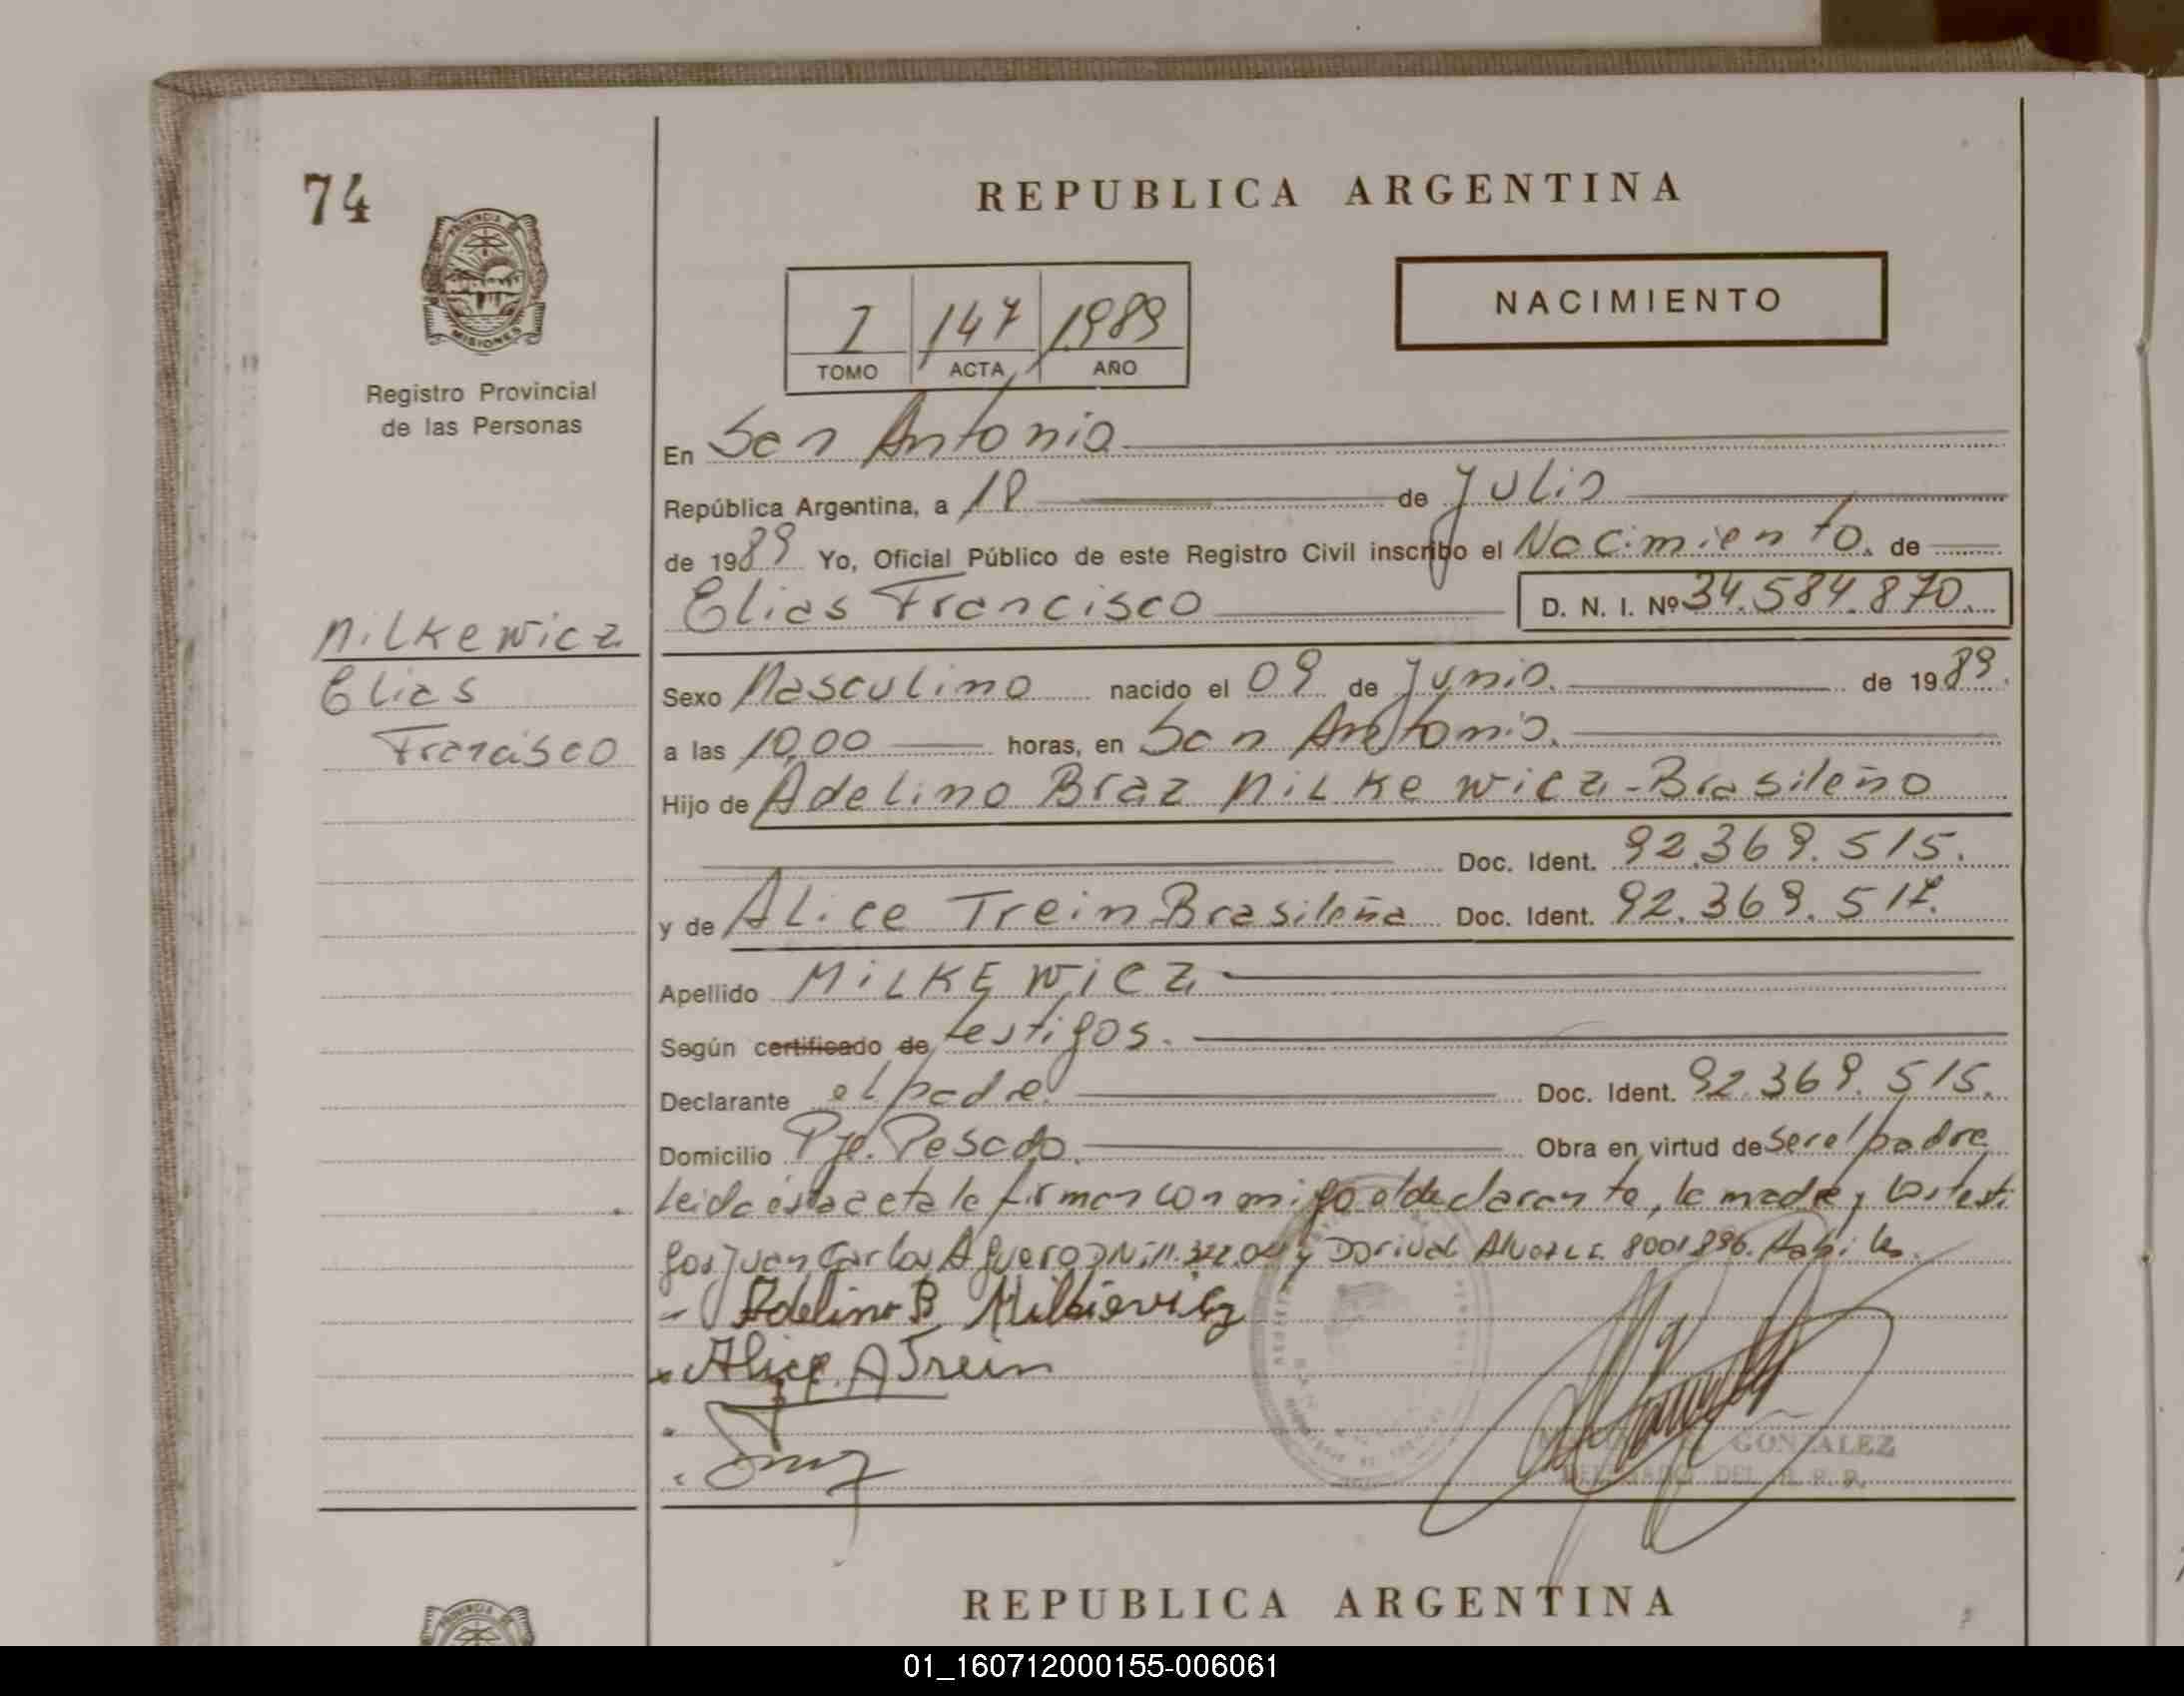 74
REPUBLICA ARGENTINA
PROVINCIA DE
MISIONES
NACIMIENTO
I 147 1989
TOMO ACTA AÑO
Registro Provincial
de las Personas
En San Antonio
República Argentina, a 18 de Julio
de 1989 Yo, Oficial Público de este Registro Civil inscribo el Nacimiento. de
Elias Francisco D. N. I. Nº 34.584.870.
Milkewicz
Elias
Francisco
Sexo Masculino nacido el 09 de Junio. de 1989.
a las 10,00 horas, en San Antonio.
Hijo de Adelino Braz Milkewicz-Brasileño
Doc. Ident. 92.369.515.
y de Alice Trein-Brasileña Doc. Ident. 92.369.517.
Apellido MILKEWICZ
Según certificado de testigos.
Declarante el padre. Doc. Ident. 92.369.515.
Domicilio Pje. Pesado. Obra en virtud de ser el padre
Leida esta acta la firman conmigo el declarante, la madre y los testi
gos Juan Carlos Aguero DNI 11.322.04 y Dorival 8001896.
Adelino B. Milkievicz
Alice A Trein
GONZALEZ
DEL R. P. P.
REPUBLICA ARGENTINA
01_160712000155-006061